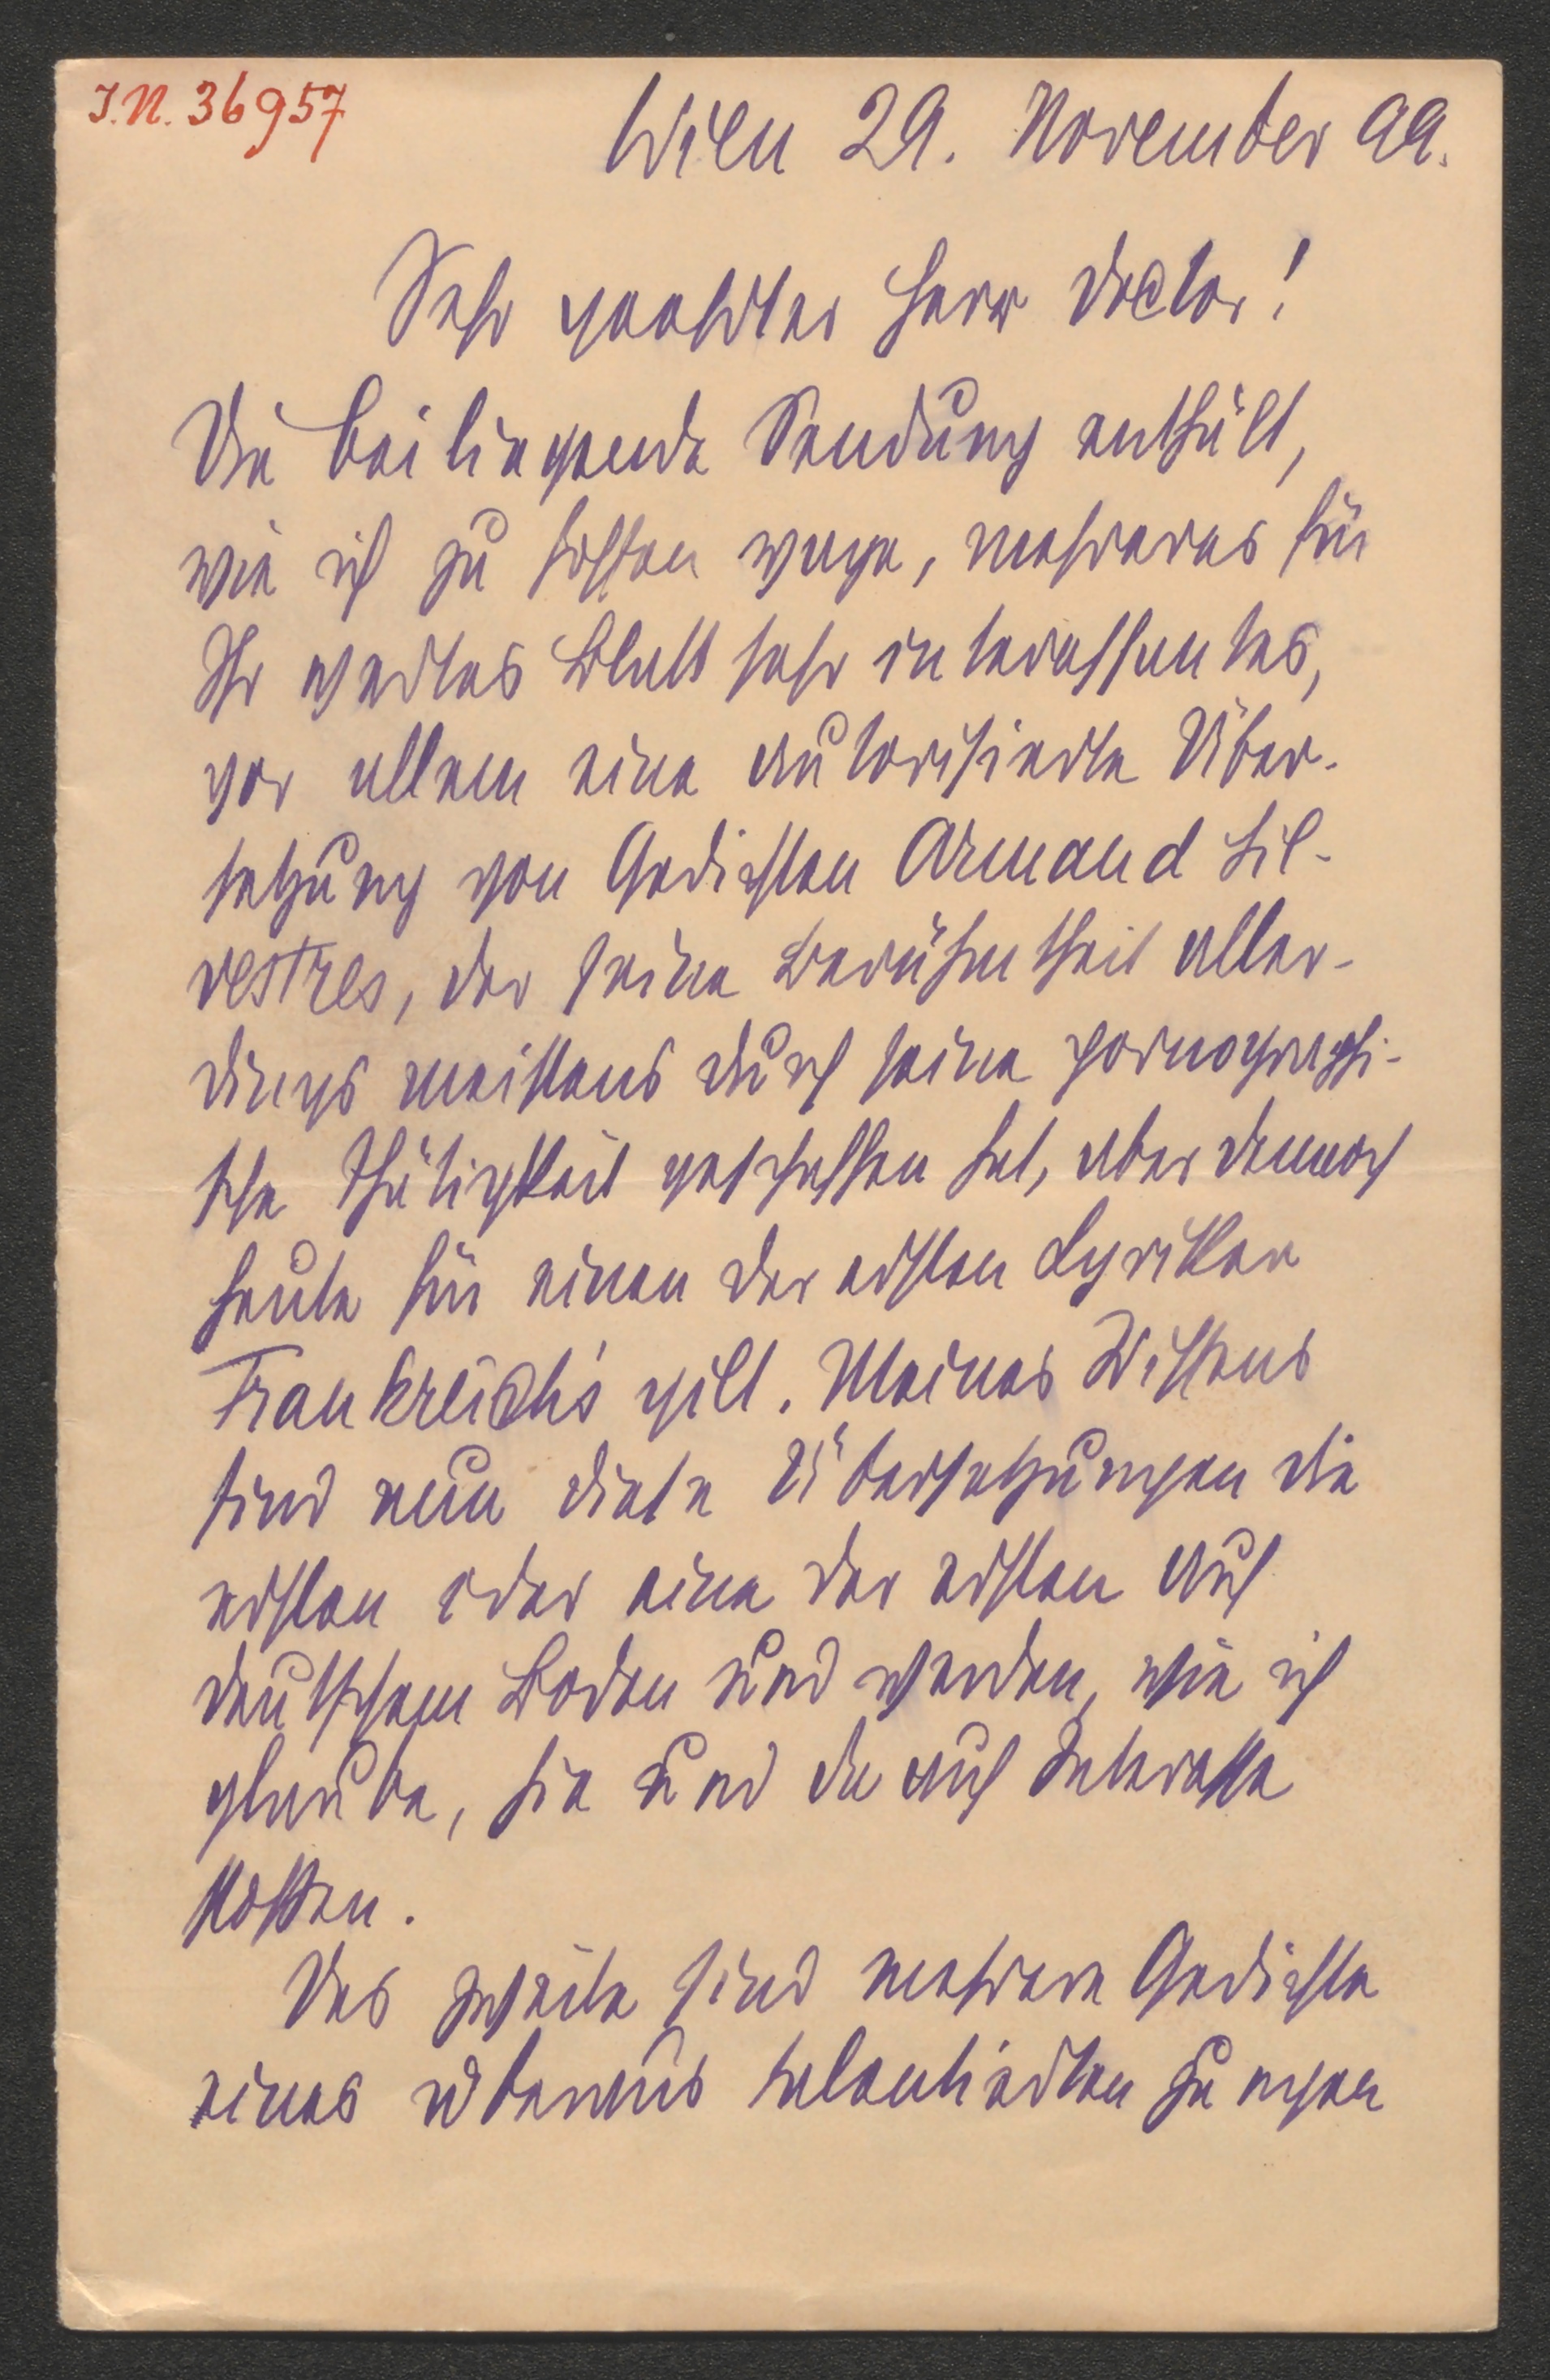 I.N. 36957
Wien 29. November 99.
Sehr geehrter Herr Doctor!
Die beiliegende Sendung enthält,
wie ich zu hoffen wage, mehreres für
Ihr wertes Blatt sehr interessantes,
vor allem eine autorisierte Über-
setzung von Gedichten Armand Sil-
vestres, der seine Berühmtheit aller-
dings meistens durch seine pornographi-
sche Thätigkeit geschaffen hat, aber dennoch
heute für einen der ersten Lyriker
Frankreich's gilt. Meines Wissens
sind nun diese Übersetzungen die
ersten oder eine der ersten auf
deutschem Boden und werden, wie ich
glaube, hie und da auf Interesse
stossen.
Das zweite sind mehrere Gedichte
eines überaus talentierten jungen